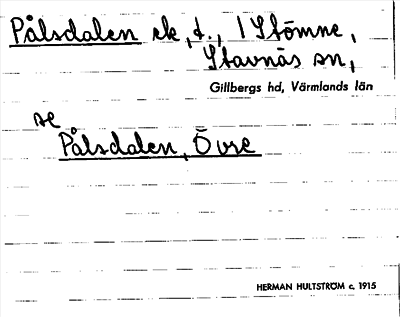 Pålsdalen ek, t., 1 Stömne,
Stavnäs sn,
Gillbergs hd, Värmlands län
se
Pålsdalen, Övre
HERMAN HULTSTRÖM c. 1915